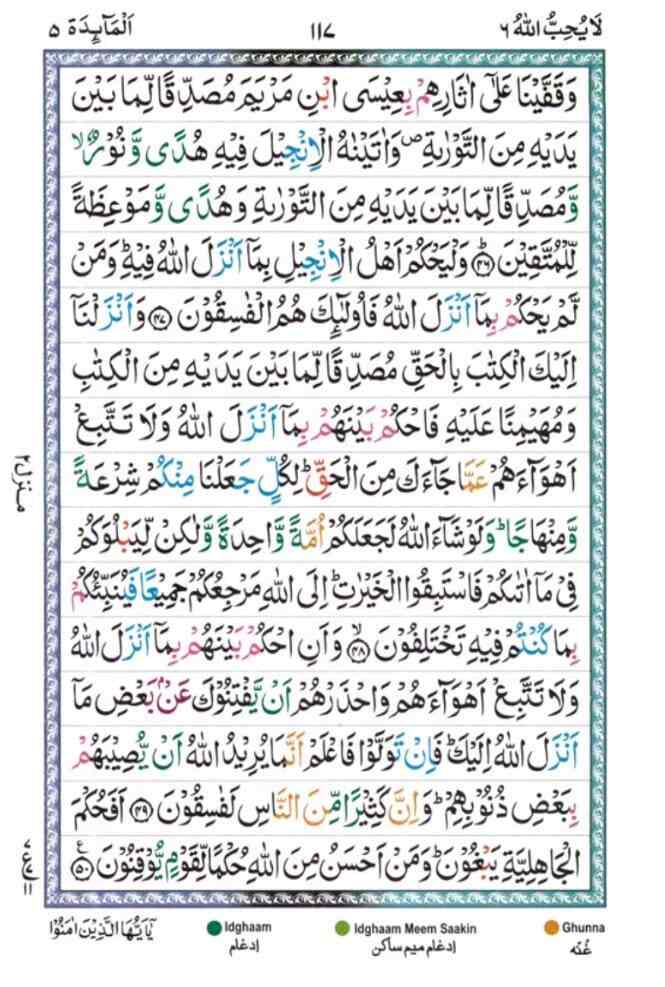 لَا يُحِبُّ اللهُ ٦ ١١٧ اَلْمَآئِدَة ٥
وَقَفَّيْنَا عَلٰٓى اٰثَارِهِمْ بِعِيْسَى ابْنِ مَرْيَمَ مُصَدِّقًا لِّمَا بَيْنَ
يَدَيْهِ مِنَ التَّوْرٰىةِ ۖ وَاٰتَيْنٰهُ الْاِنْجِيْلَ فِيْهِ هُدًى وَّنُوْرٌ ۙ
وَّمُصَدِّقًا لِّمَا بَيْنَ يَدَيْهِ مِنَ التَّوْرٰىةِ وَهُدًى وَّمَوْعِظَةً
لِّلْمُتَّقِيْنَ ﴿٤٦﴾ وَلْيَحْكُمْ اَهْلُ الْاِنْجِيْلِ بِمَآ اَنْزَلَ اللهُ فِيْهِ ؕ وَمَنْ
لَّمْ يَحْكُمْ بِمَآ اَنْزَلَ اللهُ فَاُولٰٓئِكَ هُمُ الْفٰسِقُوْنَ ﴿٤٧﴾ وَاَنْزَلْنَآ
اِلَيْكَ الْكِتٰبَ بِالْحَقِّ مُصَدِّقًا لِّمَا بَيْنَ يَدَيْهِ مِنَ الْكِتٰبِ
وَمُهَيْمِنًا عَلَيْهِ فَاحْكُمْ بَيْنَهُمْ بِمَآ اَنْزَلَ اللهُ وَلَا تَتَّبِعْ
اَهْوَآءَهُمْ عَمَّا جَآءَكَ مِنَ الْحَقِّ ؕ لِكُلٍّ جَعَلْنَا مِنْكُمْ شِرْعَةً
وَّمِنْهَاجًا ؕ وَلَوْ شَآءَ اللهُ لَجَعَلَكُمْ اُمَّةً وَّاحِدَةً وَّلٰكِنْ لِّيَبْلُوَكُمْ
فِيْ مَآ اٰتٰىكُمْ فَاسْتَبِقُوا الْخَيْرٰتِ ؕ اِلَى اللهِ مَرْجِعُكُمْ جَمِيْعًا فَيُنَبِّئُكُمْ
بِمَا كُنْتُمْ فِيْهِ تَخْتَلِفُوْنَ ﴿٤٨﴾ ۙ وَاَنِ احْكُمْ بَيْنَهُمْ بِمَآ اَنْزَلَ اللهُ
وَلَا تَتَّبِعْ اَهْوَآءَهُمْ وَاحْذَرْهُمْ اَنْ يَّفْتِنُوْكَ عَنْۢ بَعْضِ مَآ
اَنْزَلَ اللهُ اِلَيْكَ ؕ فَاِنْ تَوَلَّوْا فَاعْلَمْ اَنَّمَا يُرِيْدُ اللهُ اَنْ يُّصِيْبَهُمْ
بِبَعْضِ ذُنُوْبِهِمْ ؕ وَاِنَّ كَثِيْرًا مِّنَ النَّاسِ لَفٰسِقُوْنَ ﴿٤٩﴾ اَفَحُكْمَ
الْجَاهِلِيَّةِ يَبْغُوْنَ ؕ وَمَنْ اَحْسَنُ مِنَ اللهِ حُكْمًا لِّقَوْمٍ يُّوْقِنُوْنَ ﴿٥٠﴾ ع
منزل ٢
٧
ع
١١
يٰٓاَيُّهَا الَّذِيْنَ اٰمَنُوْا
Idghaam
ادغام
Idghaam Meem Saakin
ادغام میم ساکن
Ghunna
غُنّه